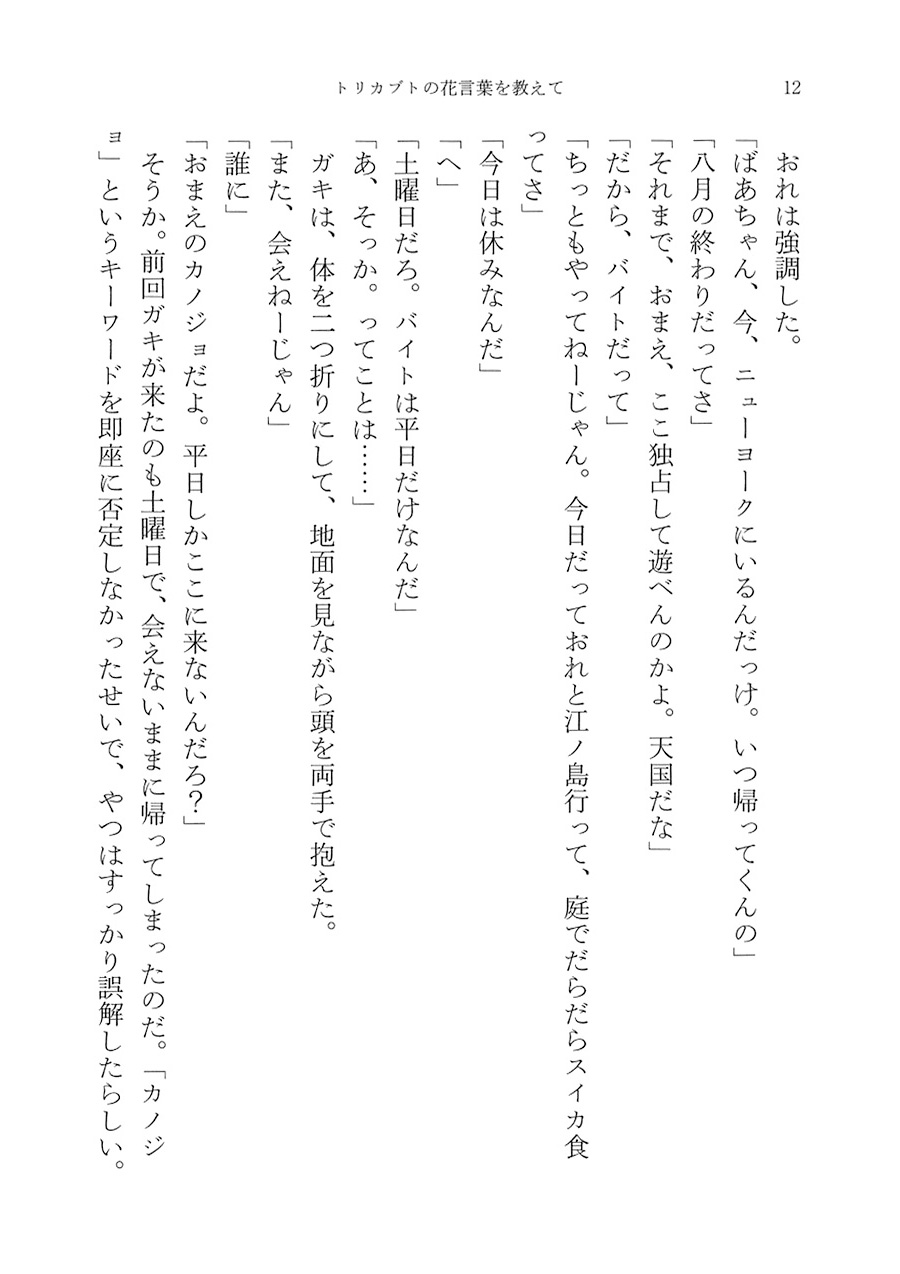 トリカブトの花言葉を教えて
12
おれは強調した。
「ばあちゃん、今、ニューヨークにいるんだっけ。いつ帰ってくんの」
「八月の終わりだってさ」
「それまで、おまえ、ここ独占して遊べんのかよ。天国だな」
「だから、バイトだって」
「ちっともやってねーじゃん。今日だっておれと江ノ島行って、庭でだらだらスイカ食
ってさ」
「今日は休みなんだ」
「へ」
「土曜日だろ。バイトは平日だけなんだ」
「あ、そっか。ってことは……」
ガキは、体を二つ折りにして、地面を見ながら頭を両手で抱えた。
「また、会えねーじゃん」
「誰に」
「おまえのカノジョだよ。平日しかここに来ないんだろ？」
そうか。前回ガキが来たのも土曜日で、会えないままに帰ってしまったのだ。「カノジ
ョ」というキーワードを即座に否定しなかったせいで、やつはすっかり誤解したらしい。